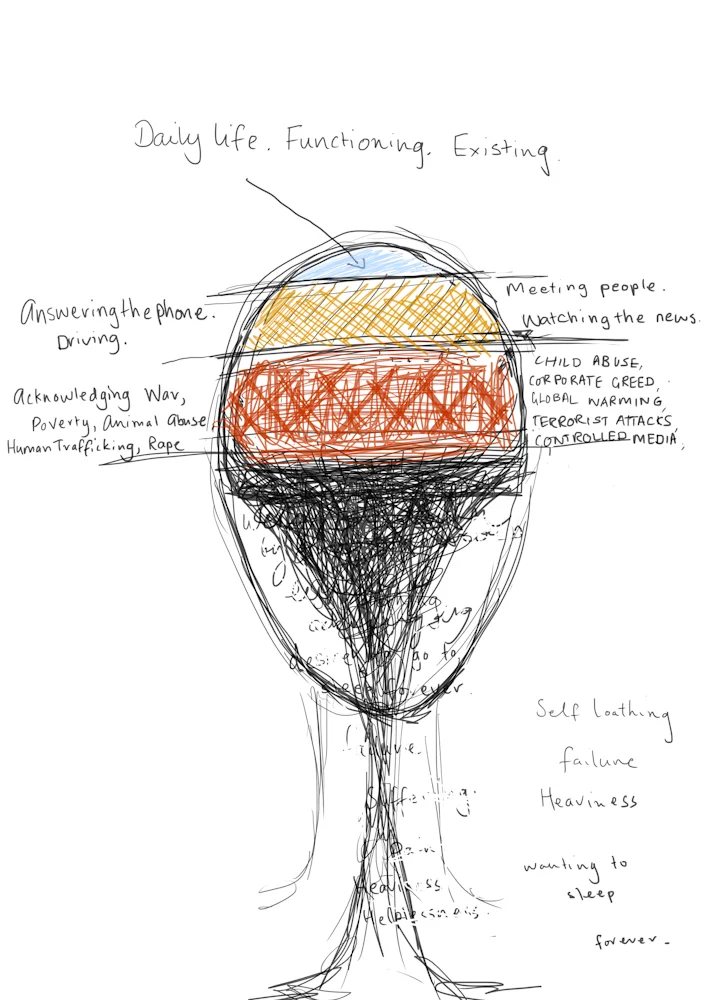 Daily life. Functioning. Existing.
Meeting people.
Answering the phone.
Watching the news.
Driving.
CHILD ABUSE,
CORPORATE GREED,
Acknowledging War,
GLOBAL WARMING,
Poverty, Animal Abuse,
TERRORIST ATTACKS,
Human Trafficking, Rape
CONTROLLED MEDIA,
desire to go to
sleep forever.
Self loathing
failure
Suffering.
Heaviness
Pain
wanting to
sleep
Heaviness
Helplessness.
forever.